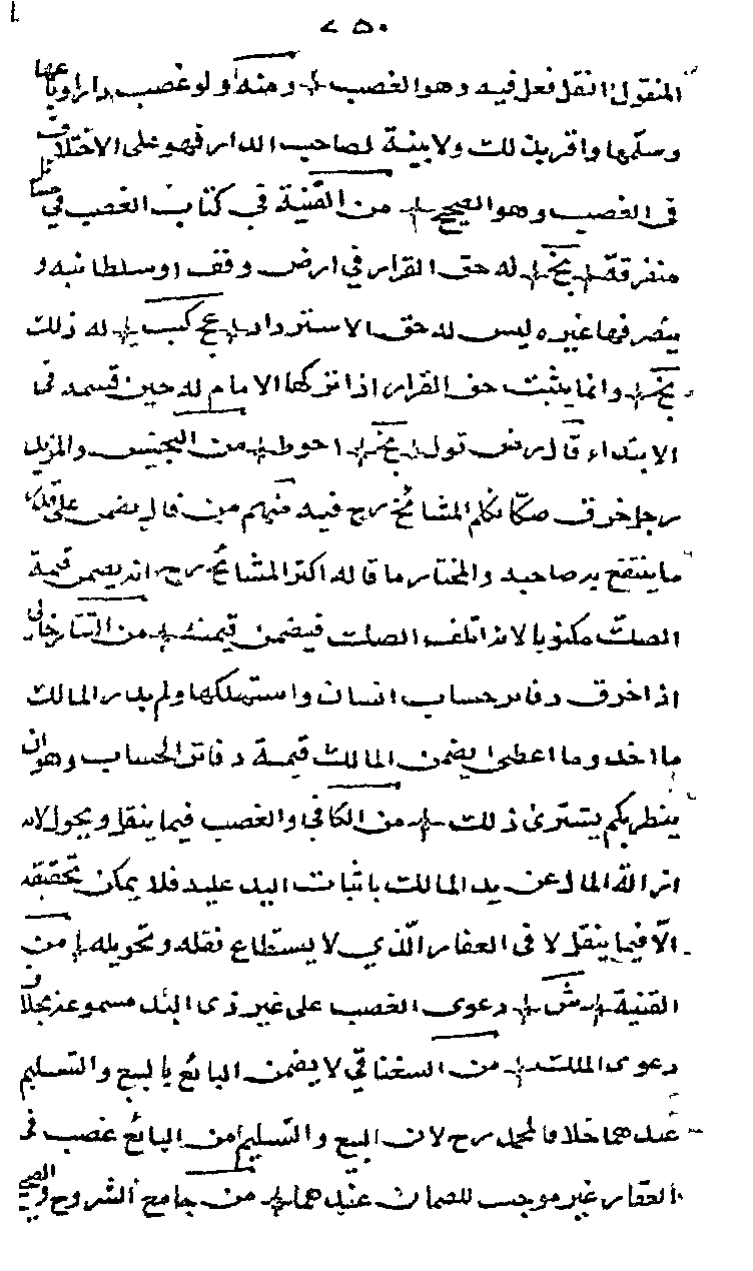 ٢٥٠
المنقول النقل فعل فيه وهو الغصب ومنه ولو غصب دارا وباعها
وسلمها واقر بذلك ولا بينة لصاحب الدار فهو على الاختلاف
فى الغصب وهو الصحيح من القنية في كتاب الغصب في مسائل
متفرقة بخ له حق القرار في ارض وقف او سلطانيه و
يتصرف فيها غيره ليس له حق الاسترداد عج كب له ذلك
بخ وانما يثبت حق القرار اذا تركها الامام له حين قسمه فى
الابتداء قال رض قول بخ احوط من التجنيس والمزيد
رجل خرق صكا تكلم المشائخ رح فيه منهم من قال يضمن على قدر
ما ينتفع به صاحبه والمختار ما قاله اكثر المشائخ رح انه يضمن قيمة
الصك مكتوبا لانه اتلف الصك فيضمن قيمته من التتارخانى
اذا خرق دفاتر حساب انسان واستهلكها ولم يدر المالك
ما اخذ وما اعطى يضمن المالك قيمة دفاتر الحساب وهو ان
ينظر بكم يشترى ذلك من الكافي والغصب فيما ينقل ويحول لانه
ازالة المال عن يد المالك باثبات اليد عليه فلا يمكن تحقيقه
الا فيما ينقل لا فى العقار الذي لا يستطاع نقله وتحويله من
القنية ش دعوى الغصب على غير ذى اليد مسموعة بخلاف
دعوى الملك من السغناقي لا يضمن البائع بالبيع والتسليم
عندهما خلافا لمحمد رح لان البيع والتسليم من البائع غصب فى
العقار غير موجب للضمان عندهما من جامع الشروح والصحيح